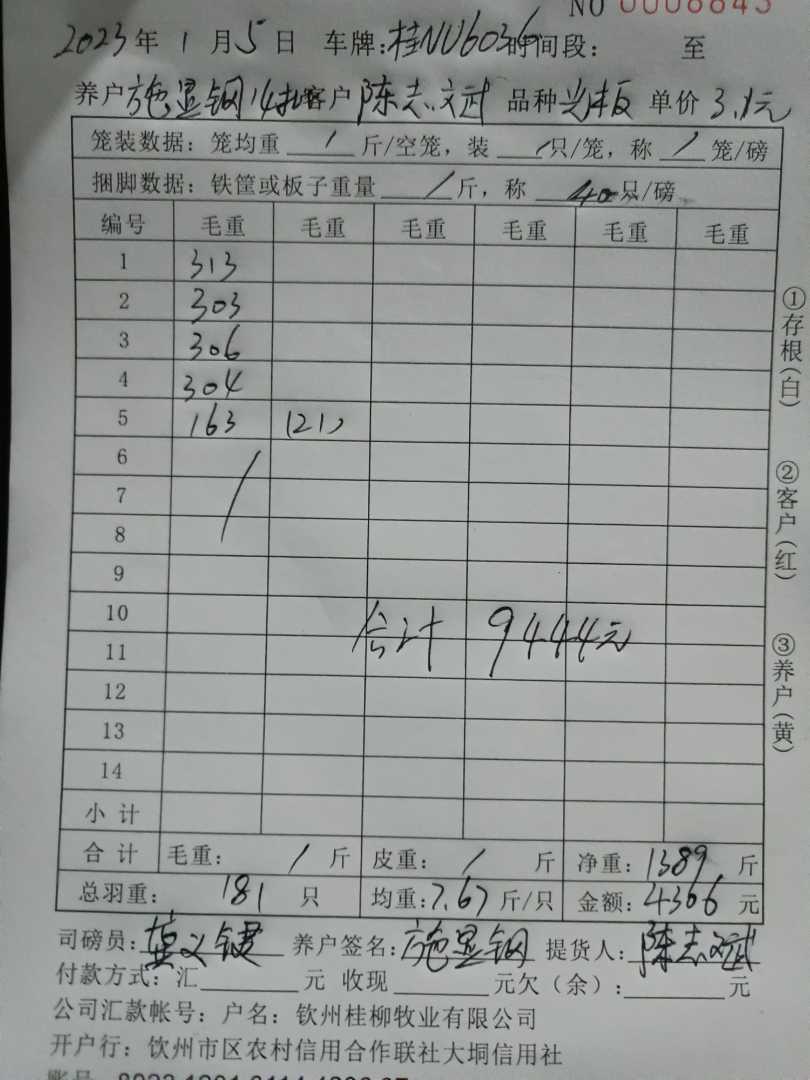 NO 0008845
2023年 1月5日 车牌:桂NU6036时间段: 至
养户施显钢 客户陈志斌 品种 单价3.1元
笼装数据: 笼均重 / 斤/空笼, 装 / 只/笼, 称 / 笼/磅
捆脚数据: 铁筐或板子重量 / 斤, 称 40只/磅
编号 毛重 毛重 毛重 毛重 毛重 毛重
1 313
2 303
3 306
4 304
5 163 (21)
6
7
8
9
10
合计 9444元
11
12
13
14
小计
合计 毛重: / 斤 皮重: / 斤 净重: 1389 斤
总羽重: 181 只 均重: 7.67 斤/只 金额: 4306 元
司磅员: 养户签名: 施显钢 提货人: 陈志斌
付款方式: 汇 元 收现 元欠(余): 元
公司汇款帐号: 户名: 钦州桂柳牧业有限公司
开户行: 钦州市区农村信用合作联社大垌信用社
①存根(白)
②客户(红)
③养户(黄)